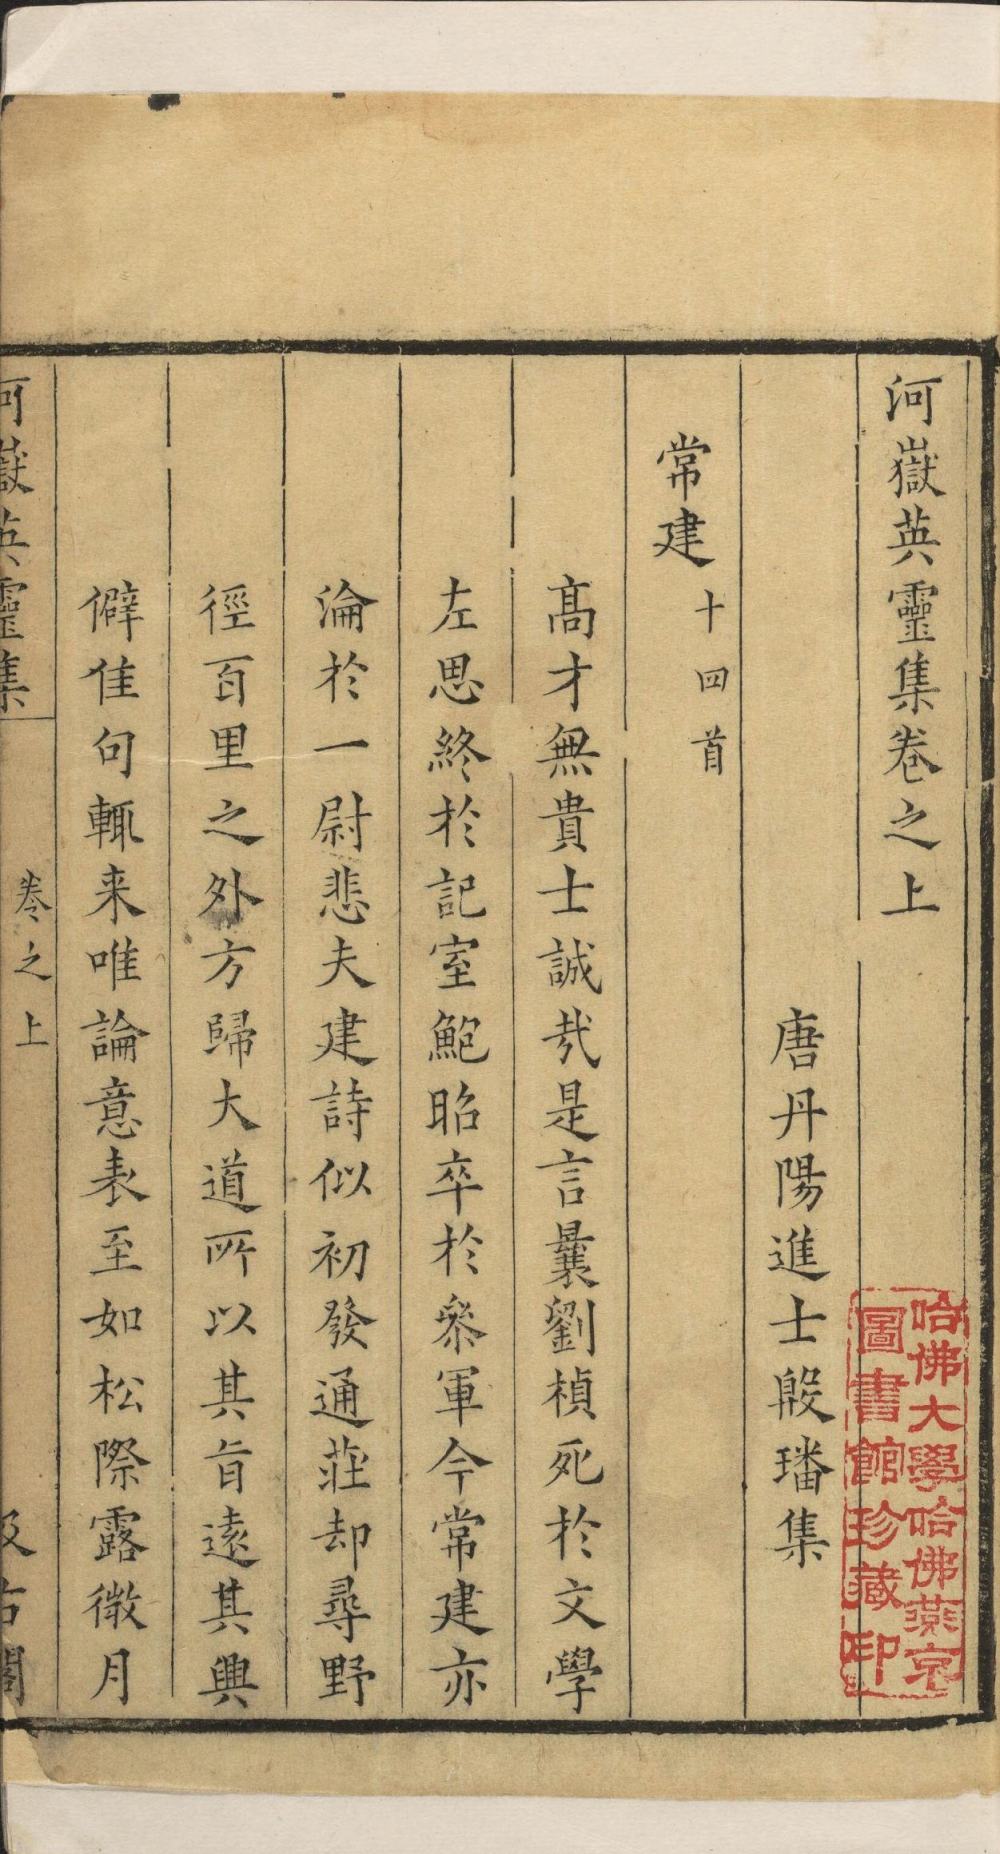 河嶽英靈集卷之上
唐丹陽進士殷璠集
常建十四首
髙才無貴士誠哉是言曩劉楨死於文學
左思終於記室鮑昭卒於叅軍今常建亦
淪於一尉悲夫建詩似初發通莊却尋野
徑百里之外方歸大道所以其旨遠其興
僻佳句輒来唯論意表至如松際露微月
河嶽英靈集
卷之上
汲古閣
哈佛大學哈佛燕京
圖書館珍藏印